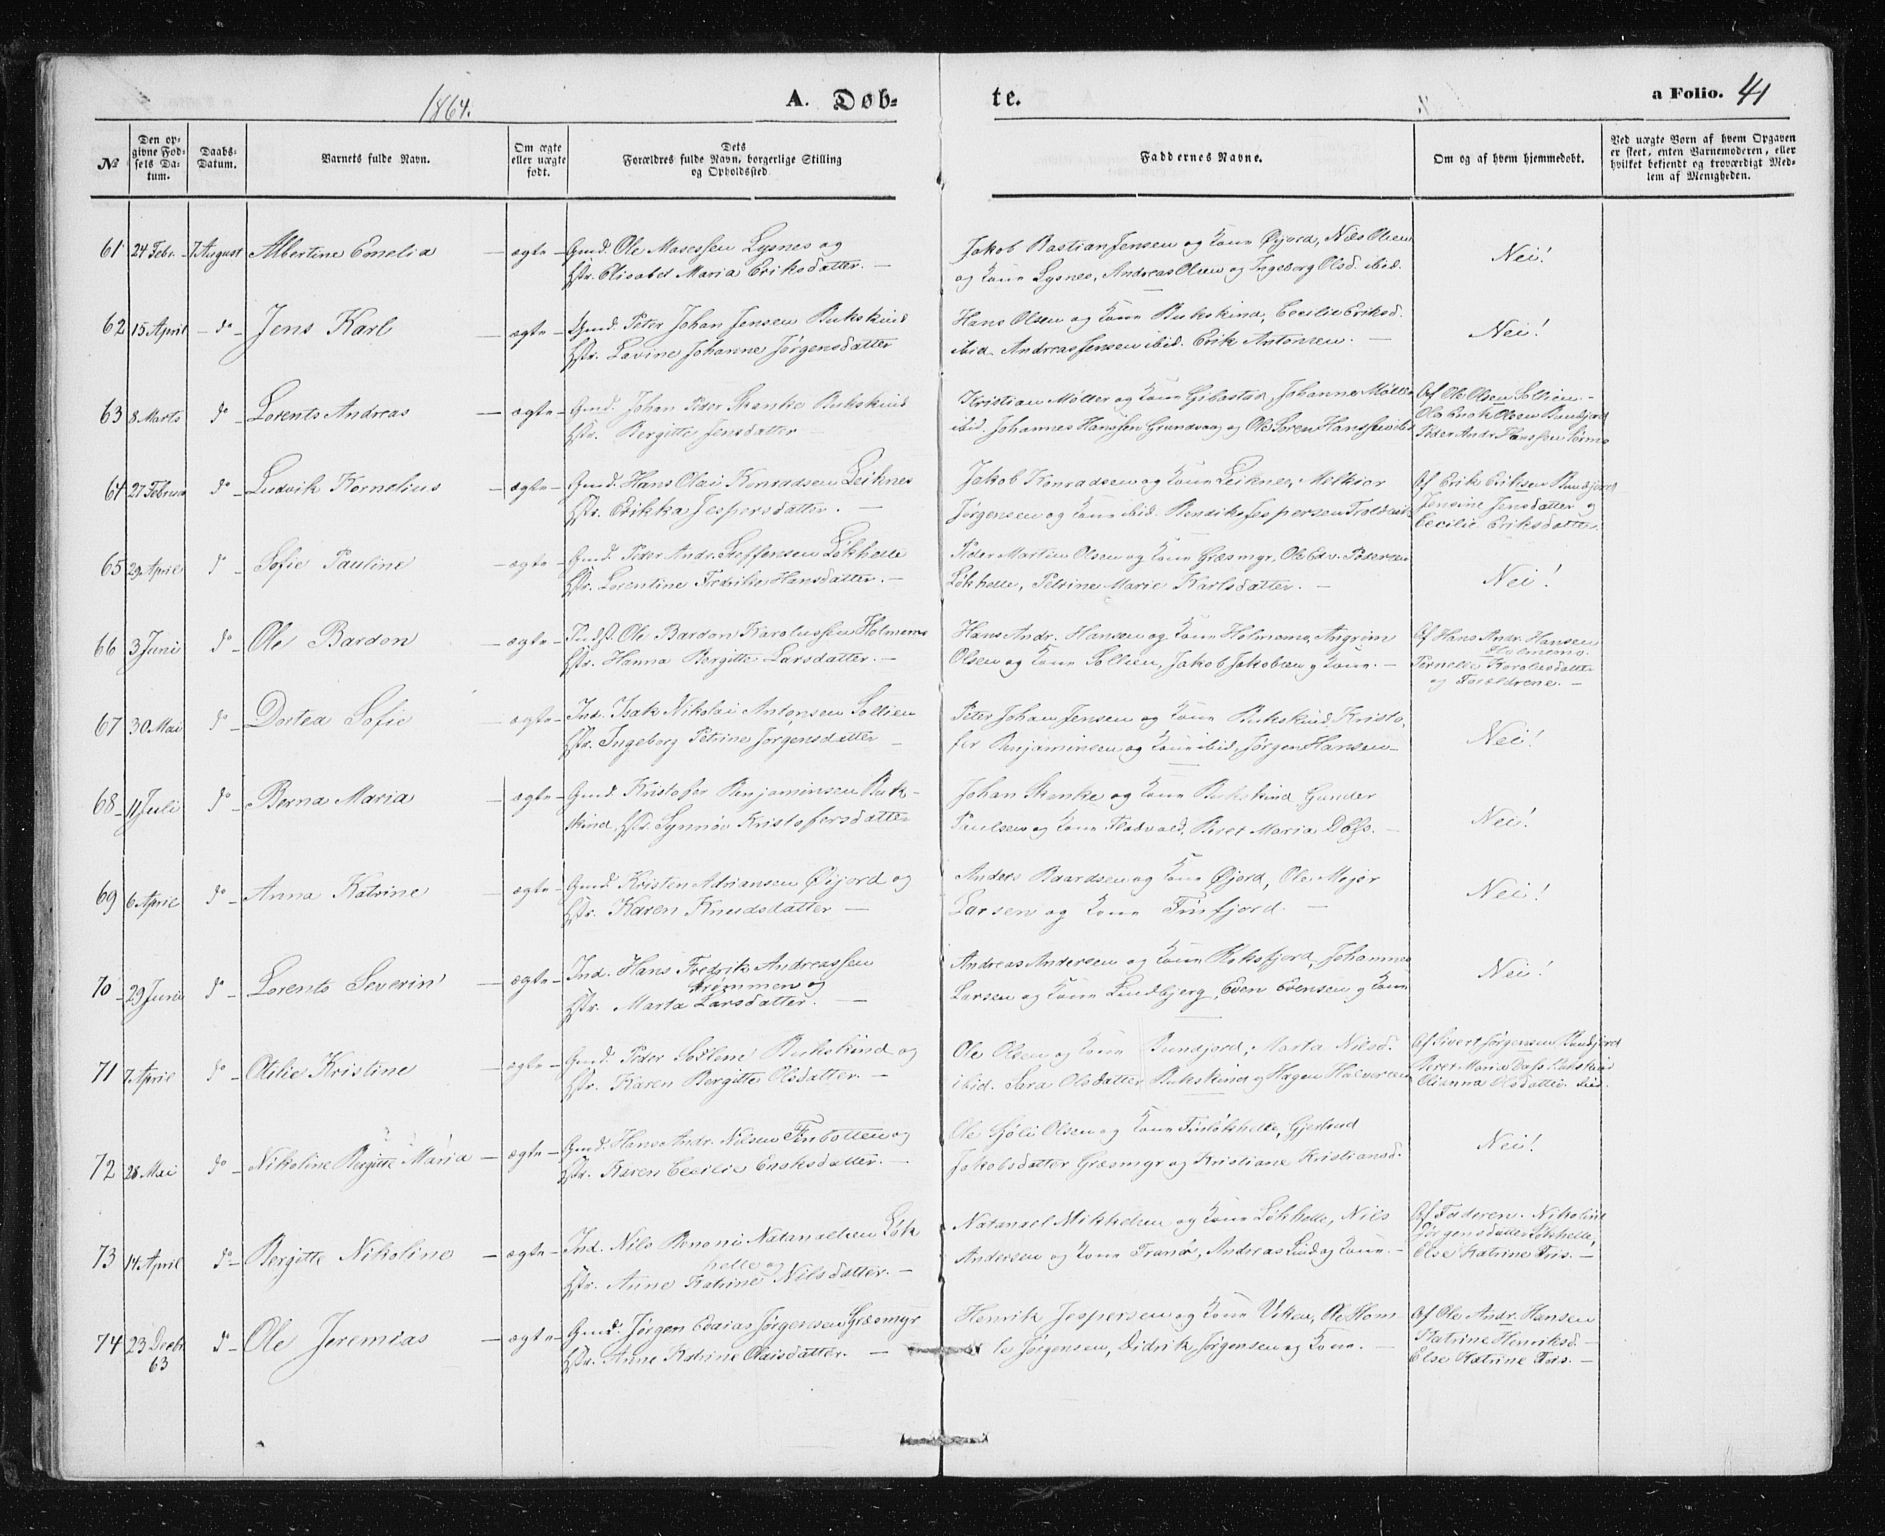 1864.
A. Døb-
te.
a Folio. 41
№
Den op-
givne Fød-
sels Da-
tum.
Daabs-
Datum.
Barnets fulde Navn.
Om ægte
eller uægte
født.
Dets
Forældres fulde Navn, borgerlige Stilling
og Opholdssted.
Faddernes Navne.
Om og af hvem hjemmedøbt.
Ved uægte Børn af hvem Opgaven
er skeet, enten Barnemoderen, eller
hvilket bekjendt og troværdigt Med-
lem af Menigheden.
61 24 Febr. 7 August Albertine Emelia — ægte — Gmd. Ole Masessen Lysnes og
Hstr. Elisabet Maria Eriksdatter. —
Jakob Bastian Jensen og Kone Øijord, Nils Olsen
og Kone Lysnes, Andreas Olsen og Ingeborg Olsd. ibid.
Nei!
62 15 April — do — Jens Karl — ægte — Gmd. Peter Johan Jensen Bukskind
Hstr. Lavine Johanne Jørgensdatter
Hans Olsen og Kone Bukskind, Cecilie Eriksd.
ibid. Andreas Jensen ibid. Erik Antonsen. —
Nei!
63 8 Marts do — Lorents Andreas — ægte — Gmd. Johan Peder Skanke Bukskind
Hstr. Bergitte Jensdatter —
Kristian Møller og Kone Gibostad, Johanne Møller
ibid. Johannes Hanssen Grundvaag og Ole Søren Hanssen ibid
Af Ole Olsen Solлien —
Ole Enok Olsen Bundjord
Peder Andr. Hanssen
64 27 Februar do — Ludvik Kornelius — ægte — Gmd. Hans Olai Konradsen Leiknes
Hstr. Erikka Jespersdatter. —
Jakob Konradsen og Kone Leiknes, Melkior
Jørgensen og Kone ibid. Hendrik Jespersen
Af Erik Eriksen Bundjord
Jensine Jensdatter og
Cecilie Eriksdatter.
65 29 April do — Sofie Pauline — ægte — Gmd. Peder Andr. Steffensen Løkhelle
Hstr. Lorentine Fredrike Hansdatter. —
Peder Martin Olsen og Kone Græsmyr, Ole Edv. Pedersen
Løkhelle, Petrine Marie Karlsdatter. —
Nei!
66 3 Juni do — Ole Bardon — ægte — Indst. Ole Bardon Karolussen Holmemo
Hstr. Hanna Bergitte Larsdatter. —
Hans Andr. Hansen og Kone Holmemo, Angrim
Olsen og Kone Sollien, Jakob Jakobsen og Kone. —
Af Hans Andr. Hansen
Holmemo.
Pernelle Karolusdatter
og Forældrene. —
67 30 Mai do — Dortea Sofie — ægte — Ind. Isak Nikolai Antonsen Sollien
Hstr. Ingeborg Petrine Jørgensdatter —
Peter Johan Jensen og Kone Bukskind, Kristo-
fer Benjaminsen og Kone ibid, Jørgen Hansen —
Nei!
68 11 Juli do — Berna Maria — ægte — Gmd. Kristofer Benjaminsen Buk-
skind, Hstr. Synnøv Kristofersdatter
Johan Skanke og Kone Bukskind, Gunder
Paulsen og Kone Fladvold, Beret Maria Dass. —
Nei!
69 6 April do — Anna Katrine — ægte — Gmd. Kristen Adriansen Øijord og
Hstr. Karen Knudsdatter —
Anders Baardsen og Kone Øijord, Ole Mejer
Larsen og Kone Finfjord. —
Nei!
70 29 Juni do — Lorents Severin — ægte — Ind. Hans Fredrik Andreassen
Strømmen og
Hstr. Marta Larsdatter. —
Andreas Andersen og Kone Roksfjord, Johannes
Larsen og Kone Lindbjerg, Even Evensen og Kone
Nei!
71 7 April do — Otilie Kristine — ægte — Gmd. Peder Bukskind og
Hstr. Karen Bergitte Olsdatter. —
Ole Olsen og Kone Bundjord, Marta Nilsd.
ibid. Sara Olsdatter Bukskind og Hagen Halvorsen
Af Sivert Jørgensen Bundjord
Beret Maria Dass Bukskind
Olianna Olsdatter ibid.
72 28 Mai do — Nikoline Bergitte Maria — ægte — Gmd. Hans Andr. Nilsen Finbotten og
Hstr. Karen Cecilie Enoksdatter. —
Ole Sjøli Olsen og Kone Finløkhelle, Gjertrud
Jakobsdatter Græsmyr og Kristiane Kristiansd.
Nei!
73 14 April do — Bergitte Nikoline — ægte — Ind. Nils Benoni Natanaelsen Løk
helle og
Hstr. Anne Katrine Nilsdatter. —
Natanael Mikkelsen og Kone Løkhelle, Nils
Andersen og Kone Tranør, Andreas Lind og Kone. —
Af Faderen. Nikoline
Jørgensdatter Løkhelle,
Else Katrine Friis. —
74 23 Decbr. 63 do — Ole Jeremias — ægte — Gmd. Jørgen Esaias Jørgensen Græsmyr
Hstr. Anne Katrine Olaisdatter. —
Henrik Jespersen og Kone Viken, Ole Hom
le Jørgensen, Didrik Jørgensen og Kone. —
Af Ole Andr. Hansen
Katrine Henriksd. —
Else Katrine Friis. —